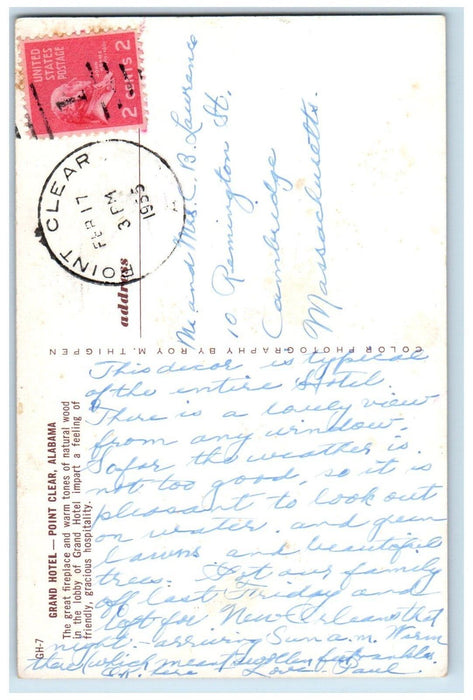 UNITED
STATES
POSTAGE
2 CENTS 2
POINT CLEAR
17
3 PM
1955
address
Mr. and Mrs. C. B. Lawrence
10 Remington St.
Cambridge
Massachusetts.
COLOR PHOTOGRAPHY BY ROY M. THIGPEN
GRAND HOTEL — POINT CLEAR, ALABAMA
The great fireplace and warm tones of natural wood
in the lobby of Grand Hotel impart a feeling of
friendly, gracious hospitality.
GH-7
This decor is typical
of the entire Hotel.
There is a lovely view
from any window.
So far the weather is
not too good, so it is
pleasant to look out
on water and green
lawns and beautiful
trees. Got our family
off last Friday and
left for New Orleans that
night - arriving Sun a.m. Warm
there which meant swollen
O.K. here Love Paul.